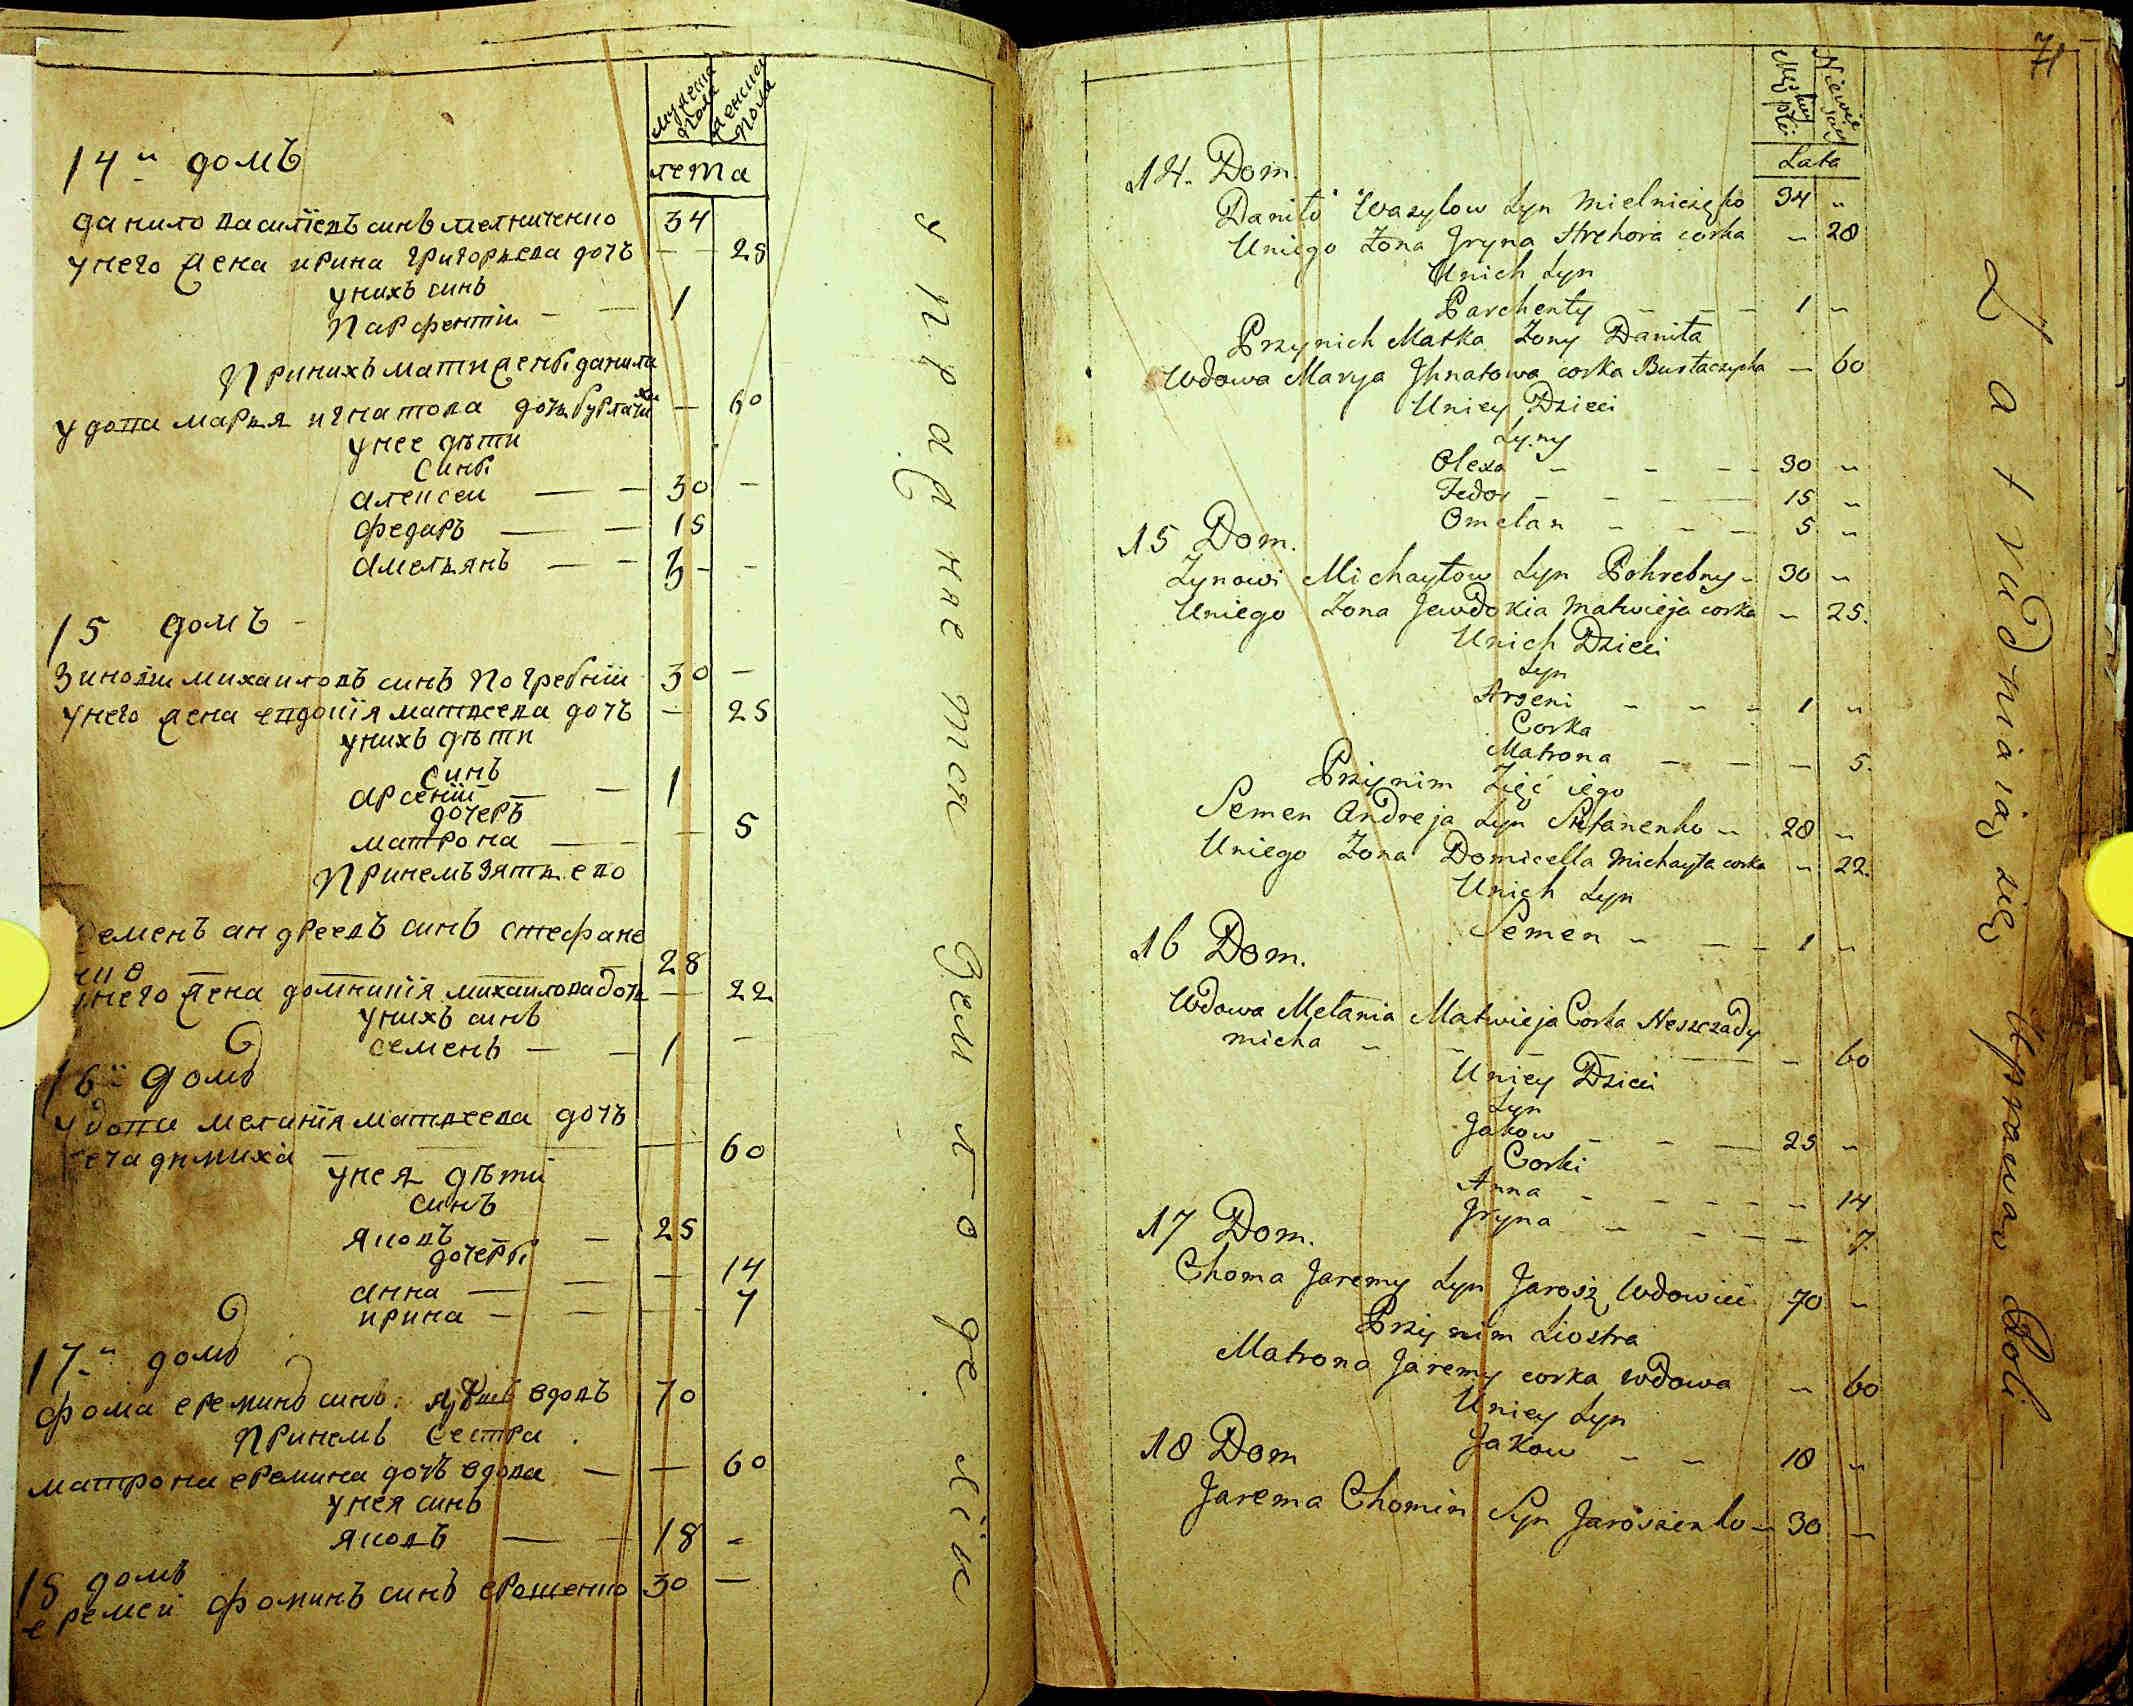 мужеска пола
женска пола
лета
14й домъ
данило василiевъ синъ мелниченко 34
унего жена ирина григорьева дочъ — 28
унихъ синъ
парфентiи — — 1
Принихъ мати жены данили
удова марья игнатова дочь бурлачиха — 60
унее дѣти
сины
алексеи — — 30 —
федаръ — — 15
амельянъ — — 5 — —
15 домъ -
Зиновiи михаиловъ синъ погребнiи 30 —
унего жена евдокiя матвеева дочъ — 25
унихъ дѣти
синъ
арсенiи — — 1
дочеръ
матрона — — — 5
принемъ зять ево
Семенъ андреевъ синъ стефане
нко — — — 28
унего жена домникiя михаилова дочь — 22
унихъ синъ
семенъ — — 1 —
16й домъ
удова меланiя матвеева дочъ
нещадимиха — — — — 60
унея дѣти
синъ
яковъ — 25
дочеры
анна — — — 14
ирина — — — 7
17й домъ
фома ереминъ синъ вдовъ 70
принемъ сестра
матрона еремина дочъ вдова — — 60
унея синъ
яковъ — — 18 -
18 домъ
еремеи фоминъ синъ ерошенко 30 —
упражняется Землоделiи
71
Męskiey płci
Niewieściey
Lata
14. Dom.
Daniło Wasylow Syn Mielniczęko 34 „
Uniego Zona Jryna Hrehora corka „ 28
Unich Syn
Parchenty - - - 1 „
Przynich Matka Zony Daniła
Wdowa Marya Jhnatowa corka Burłaczycha — 60
Uniey Dzieci
Syny
Olexa - - - 30 „
Fedor - - — 15 „
Omelan - - - 5 „
15 Dom.
Zynowi Michayłow Syn Pohrebny - 30 „
Uniego Zona Jewdokia Matwieja corka - 25.
Unich Dzieci
Syn
Arseni - - - 1 „
Corka
Matrona - - - 5.
Przynim Zięć iego
Semen Andreja Syn Stefanenko - 28 „
Uniego Zona Domicella Michayła corka - 22.
Unich Syn
Semen - - - 1 „
16 Dom.
Wdowa Melania Matwieja Corka Neszczady
micha - - - - 60
Uniey Dzieci
Syn
Jakow - - — 25 „
Corki
Anna - - - - - 14
Jryna - - - - 7.
17 Dom.
Choma Jaremy Syn Jarosz Wdowiec 70 „
Przynim Siostra
Matrona Jaremy corka wdowa „ 60
Uniey Syn
Jakow - - 18 „
18 Dom
Jarema Chomin Syn Jaroszenko - 30 —
Zatrudniaią się Uprawą Roli —